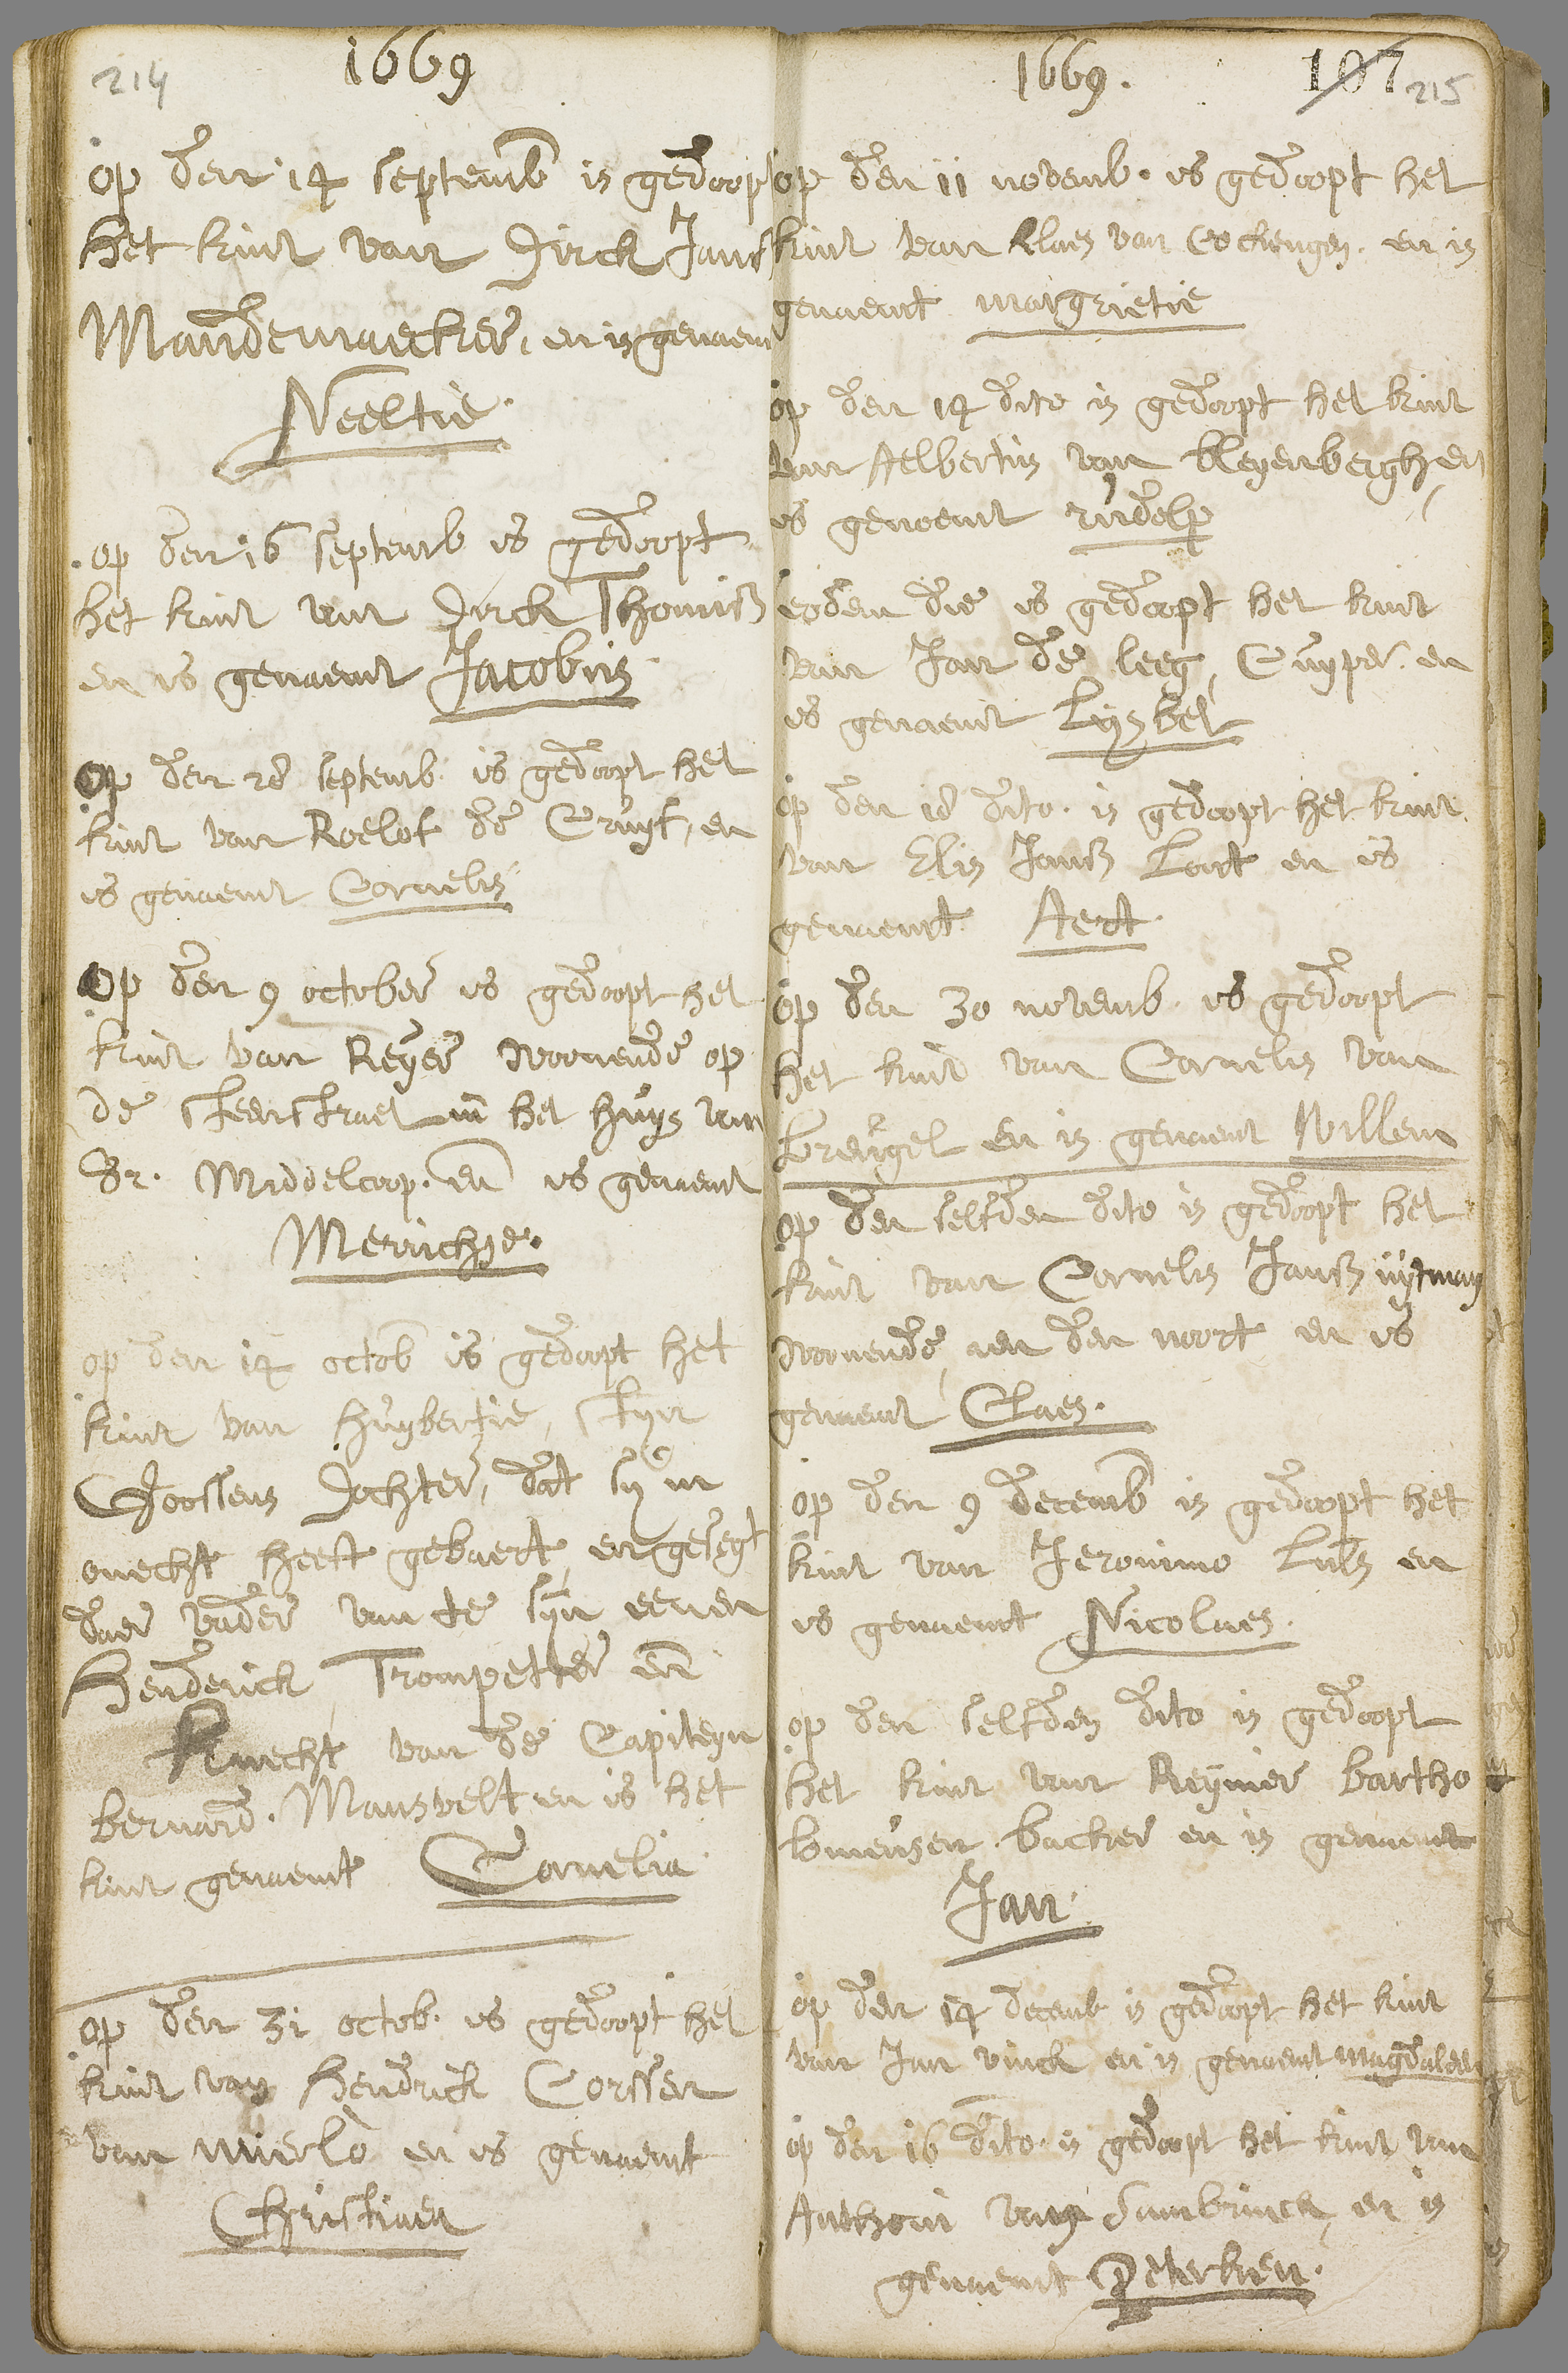 214
1669
op den 14 septemb is gedoopt
het kint van Dirck Jans
Mandemaecker, en is genaemt
Neeltie.
op den 16 septemb is gedoopt
het kint van Dirck Thonisz
en is genaemt Jacobus
Op den 28 septemb. is gedoopt het
kint van Roelof de Cruyf, en
is genaemt Cornelis
Op den 9 october is gedoopt het
kint van Reyer woonende op
de steenstraet in het huys van
Sr. Middelcoop. en is genaemt
Merrichje.
op den 14 octob is gedoopt het
kint van Huybertie, Styn
Goossens Dochter, dat sy in
onecht heeft gebaert, en gesegt
daer vader van te syn eenen
Henderick Trompetter en
Knecht van de Capiteyn
bernard. Mansvelt en is het
kint genaemt Cornelia
op den 31 octob. is gedoopt het
kint van Hendrick Corssen
van mierlo en is genaemt
Christiaen
1669.
107 215
op den 11 novemb. is gedoopt het
kint van Klaes van Cockengen. en is
genaemt margrietie
op den 14 dito is gedoopt het kint
van Aelbertus van kleyenbergh en
is genoemt rudolp
eoden die is gedoopt het kint
van Jan de leeg, Cuyper. en
is genaemt Lysbet
op den 18 dito. is gedoopt het kint
van Elis Jansz Lait en is
genaemt Aert.
op den 30 novemb. is gedoopt
het kind van Cornelis van
breugel en is genaemt Willem
op den selfden dito is gedoopt het
kint van Cornelis Jansz uytmay
woonende, aen den noort en is
genaemt Claes.
op den 9 decemb is gedoopt het
kint van Jeronimo en
is genaemt Nicolaes.
op den selfden dito is gedoopt
het kint van Reynier bartho
lomeusen. backer en is genaemt
Jan.
op den 14 decemb is gedoopt het kint
van Jan vinck en is genaemt magdalen
op den 16 dito. is gedoopt het kint van
Anthoni van Sambrinck, en is
genaemt Peterken.